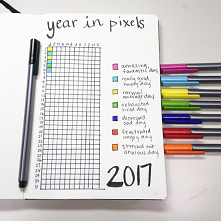 year in pixels
J F M A M J J A S O N D
amazing,
fantastic day
really good,
happy day
normal,
average day
exhausted
tired day
depressed
sad day
frustrated
angry day
stressed out
anxious day
2017